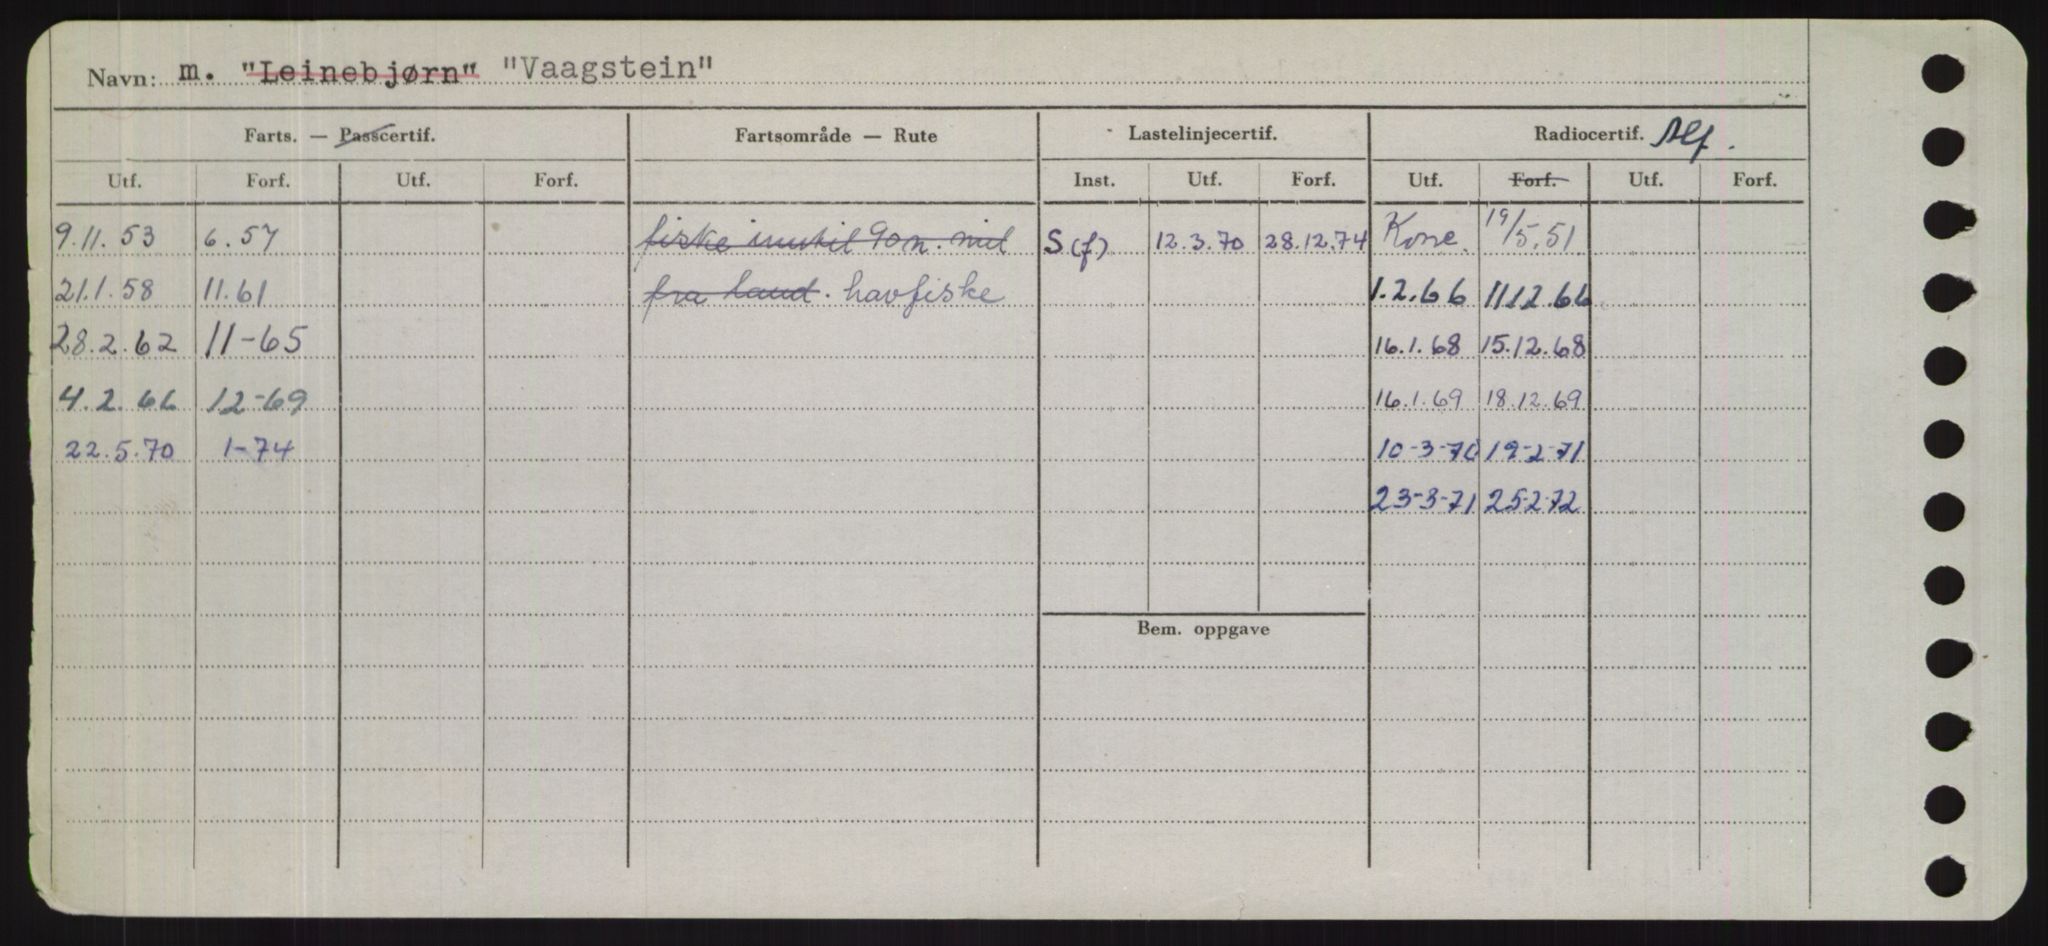 Navn: m. "Leinebjørn" "Vaagstein"
Farts. — Passcertif. Fartsområde — Rute Lastelinjecertif. Radiocertif.
Utf. Forf. Utf. Forf. Inst. Utf. Forf. Utf. Forf. Utf. Forf.
9.11.53 6.57 fiske inntil 90 n. mil S(f) 12.3.70 28.12.74 19/5.51
21.1.58 11.61 fra land. havfiske 1.2.66 11.12.66
28.2.62 11-65 16.1.68 15.12.68
4.2.66 12-69 16.1.69 18.12.69
22.5.70 1-74 10-3-70 19-2-71
23-3-71 25-2-72
Bem. oppgave